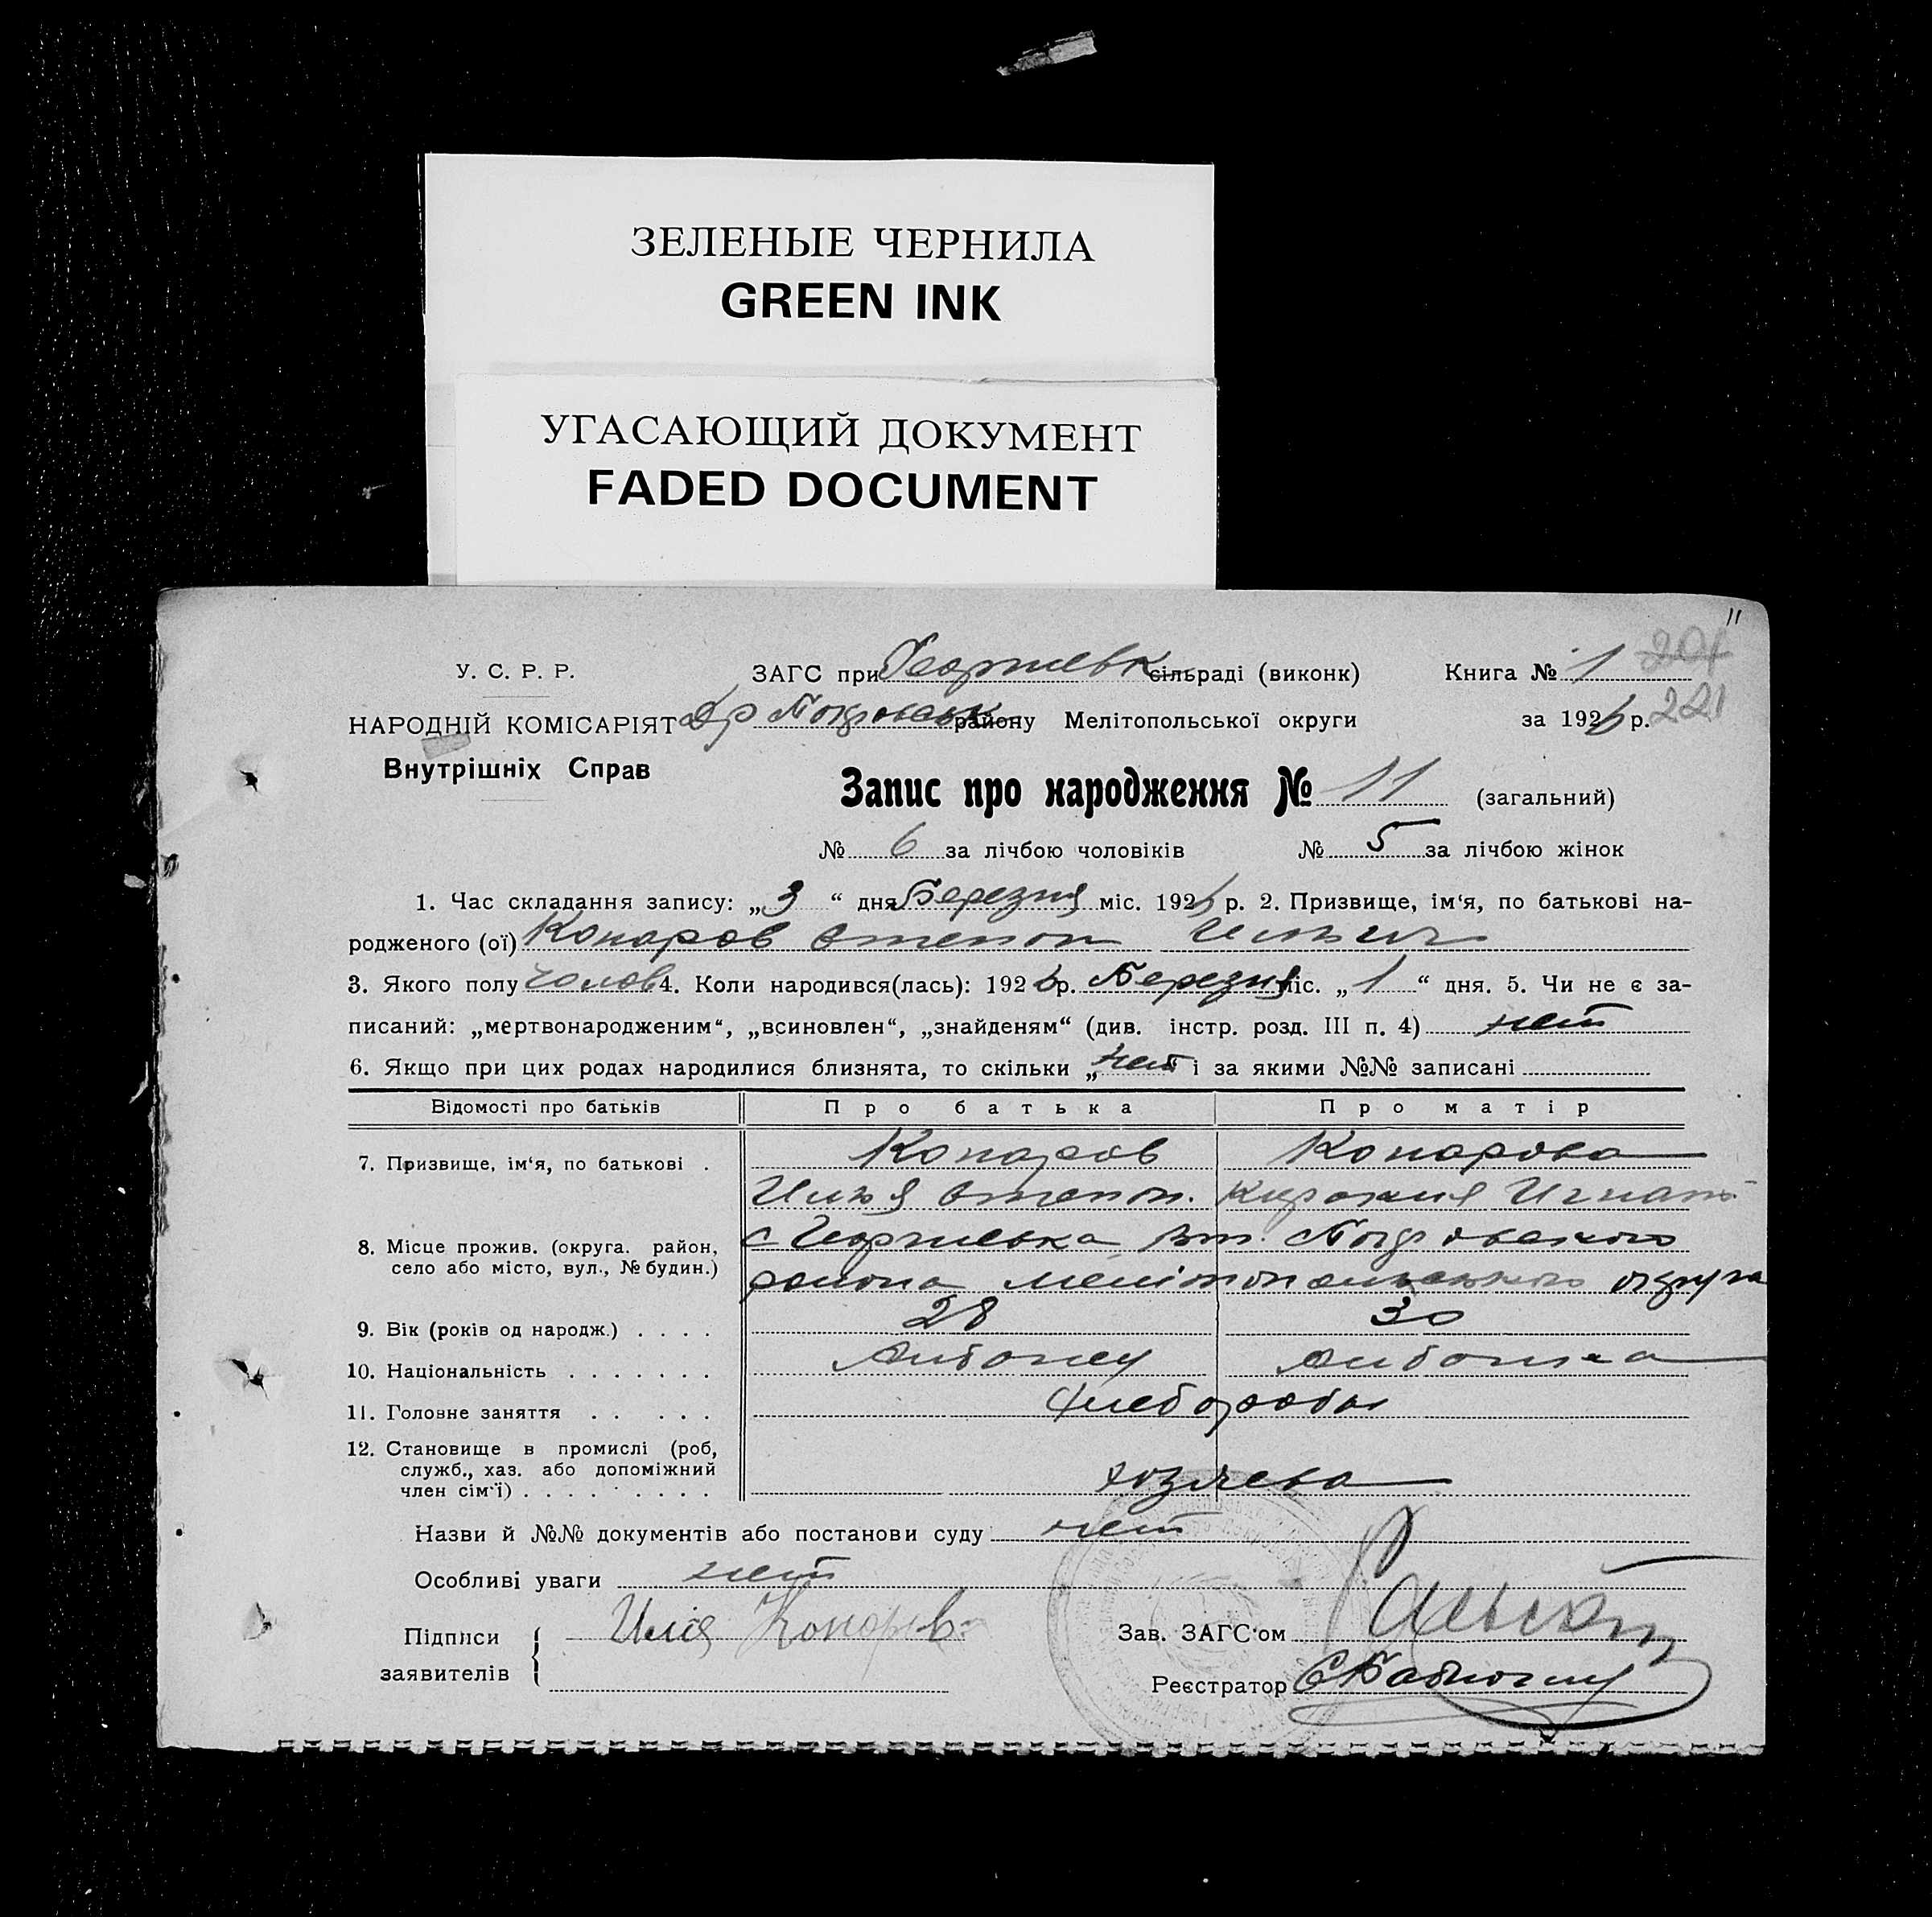 ЗЕЛЕНЫЕ ЧЕРНИЛА
GREEN INK
УГАСАЮЩИЙ ДОКУМЕНТ
FADED DOCUMENT
11
У. С. Р. Р. ЗАГС при Георгиевк сільраді (виконк) Книга № 1 204
НАРОДНІЙ КОМІСАРІЯТ району Мелітопольської округи за 1926 р. 221
Внутрішніх Справ
Запис про народження № 11 (загальний)
№ 6 за лічбою чоловіків № 5 за лічбою жінок
1. Час складання запису: „3“ дня Березня міс. 1926 р. 2. Призвище, ім‘я, по батькові на-
родженого (ої) Конаров Степан Ильич
3. Якого полу чолов 4. Коли народився(лась): 1926 р. Березня міс. „1“ дня. 5. Чи не є за-
писаний: „мертвонародженим“, „всиновлен“, „знайденям“ (див. інстр. розд. III п. 4) нет
6. Якщо при цих родах народилися близнята, то скільки „нет“ і за якими №№ записані
Відомості про батьків Про батька Про матір
7. Призвище, ім‘я, по батькові . Конаров Конарова
Илья Степан. Игнат.
8. Місце прожив. (округа. район, с Георгиевка
село або місто, вул., № будин.) района Мелітопольского округа
9. Вік (років од народж.) . . . . 28 30
10. Національність . . . . . . .
11. Головне заняття . . . . . хлеборобы
12. Становище в промислі (роб,
служб., хаз. або допоміжний
член сім‘ї) . . . . . . . . . хозяева
Назви й №№ документів або постанови суду нет
Особливі уваги нет
Підписи Илія Конарев
заявителів
Зав. ЗАГС‘ом
Реєстратор